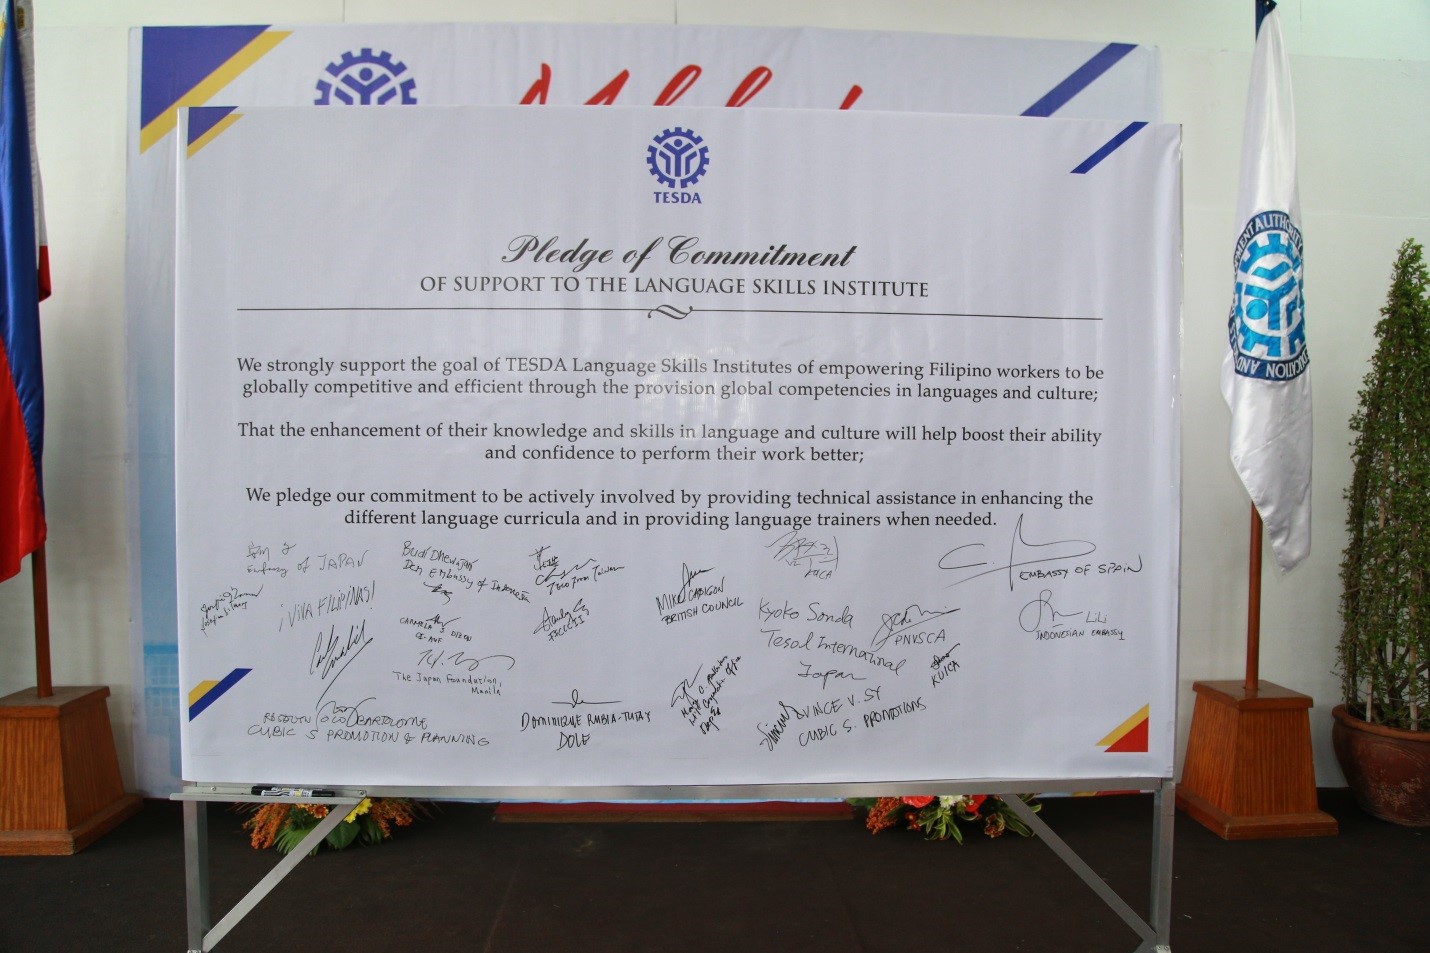 TESDA
Pledge of Commitment
OF SUPPORT TO THE LANGUAGE SKILLS INSTITUTE
We strongly support the goal of TESDA Language Skills Institutes of empowering Filipino workers to be
globally competitive and efficient through the provision global competencies in languages and culture;
That the enhancement of their knowledge and skills in language and culture will help boost their ability
and confidence to perform their work better;
We pledge our commitment to be actively involved by providing technical assistance in enhancing the
different language curricula and in providing language trainers when needed.
Embassy of JAPAN
Budi Dhewajani
Embassy of Indonesia
Teco from Taiwan
KOICA
EMBASSY OF SPAIN
¡VIVA FILIPINAS!
CARMELA S DIZON
FFCCCII
MIKE CABIGON
BRITISH COUNCIL
Kyoko Sonda
Tesol International
Japan
PNVSCA
LiLi
INDONESIAN EMBASSY
The Japan Foundation,
Manila
KOICA
BARTOLOME
CUBIC S PROMOTION & PLANNING
DOMINIQUE RUBIA-TUTAY
DOLE
DepEd
VINCE V. SY
CUBIC S. PROMOTIONS
MENT AUTHORITY
EDUCATION AND